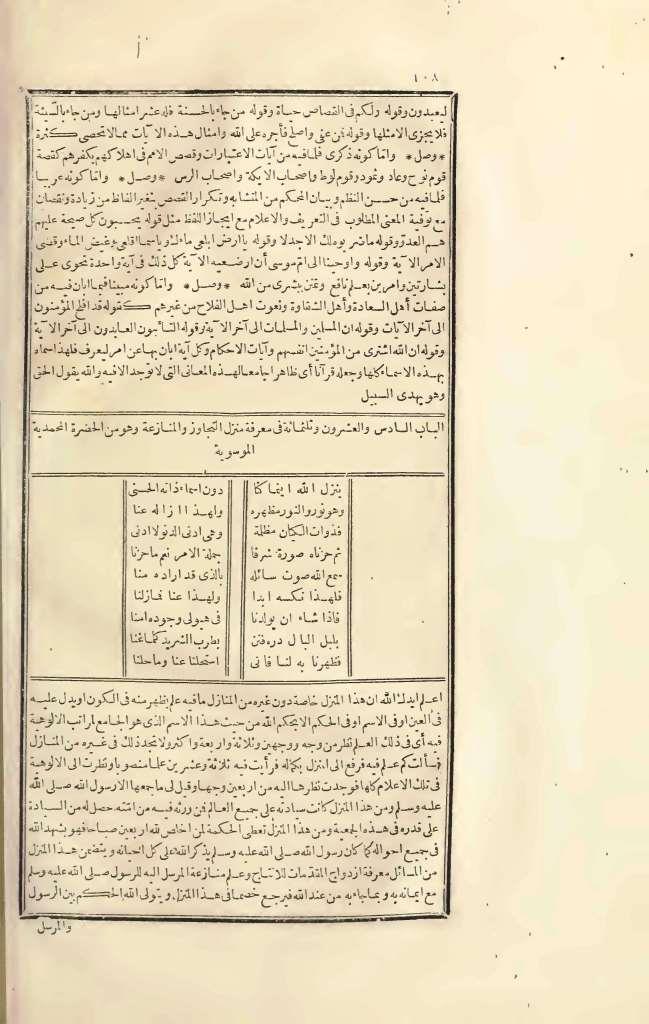 ١٠٨
ليعبدون وقوله ولكم فى القصاص حياة وقوله من جاء بالحسنة فله عشر امثالها ومن جاء بالسيئة
فلا يجزى الامثلها وقوله فمن عفى واصلح فأجره على الله وامثال هذه الآيات مما لاتحصى كثرة
*وصل* واما كونه ذكرى فلما فيه من آيات الاعتبارات وقصص الامم فى اهلاكهم بكفرهم كقصة
قوم نوح وعاد وثمود وقوم لوط واصحاب الايكة واصحاب الرس *وصل* واما كونه عربيا
فلما فيه من حسن النظم وبيان المحكم من المتشابه وتكرار القصص بتغير الفاظ من زيادة ونقصان
مع توفية المعنى المطلوب فى التعريف والاعلام مع ايجاز اللفظ مثل قوله يحسبون كل صيحة عليهم
هم العدو وقوله ماضربوه لك الاجدلا وقوله يا ارض ابلعى ماءك ويا سما اقلعى وغيض الماء وقضى
الامر الآية وقوله واوحينا الى ام موسى أن ارضعيه الآية كل ذلك فى آية واحدة تحوى على
بشارتين وامرين بعلم نافع وعن بشرى من الله *وصل* واما كونه مبينا فبما ابان فيه من
صفات أهل السعادة وأهل الشقاوة ونعوت اهل الفلاح من غيرهم كقوله قد افلح المؤمنون
الى آخر الآيات وقوله ان المسلمين والمسلمات الى آخر الآية وقوله التائبون العابدون الى آخر الآية
وقوله ان الله اشترى من المؤمنين انفسهم وآيات الاحكام وكل آية ابان بها عن امر ليعرف فلهذا سماه
بهذه الاسماء كلها وجعله قرآنا أى ظاهرا جامعا لهذه المعانى التى لا توجد الا فيه والله يقول الحق
وهو يهدى السبيل
الباب السادس والعشرون وثلثمائة فى معرفة منزل التحاور والمنازعة وهو من الحضرة المحمدية
الموسوية
ينزل الله اينما كنا دون اسماء ذاته الحسنى
وهو نور والنور مظهره ولهذا ازاله عنا
فذوات الكيان مظلمة وهى ادنى الدنو لا ادنى
ثم حزناه صورة شرفا جملة الامر نعم ما حزنا
سمع الله صوت سائله بالذى قد اراده منا
فلهذا نكسه ابدا ولهذا عنا فما زلنا
فاذا شاء ان يولدنا فى هيولى وجوده امنا
بلبل البال دره فتن بطرب الشريد كلما غنا
فظهرنا به لنا فانى استحلنا عنا وما حلنا
اعلم ايدك الله ان هذا المنزل خاصة دون غيره من المنازل ما فيه علم يظهر منه فى الكون او يدل عليه
فى العين او فى الاسم او فى الحكم الا يحكم الله من حيث هذا الاسم الذى هو الجامع لمراتب الالوهية
فيه أى فى ذلك العلم نظر من وجه ووجهين وثلاثة واربعة واكثر ولا تجد ذلك فى غيره من المنازل
فسألت كم علم فيه فرفع الى المنزل بكماله فرأيت فيه ثلاثة وعشرين علما منصوبا ونظرت الى الالوهية
فى تلك الاعلام كلها فوجدت نظرها اليه من اربعين وجها وقيل لى ما جمعها الا رسول الله صلى الله
عليه وسلم ومن هذا المنزل كانت سيادته على جميع العالم فمن ورثه فيه من امته حصل له من السيادة
على قدره فى هذه الجمعية ومن هذا المنزل تعطى الحكمة لمن اخلص لله اربعين صباحا فهو يشهد الله
فى جميع احواله كما كان رسول الله صلى الله عليه وسلم يذكر الله على كل احيانه ويتضمن هذا المنزل
من المسائل معرفة ازدواج المقدمات للانتاج وعلم منازعة المرسل اليه للرسول صلى الله عليه وسلم
مع ايمانه به وبما جاء به من عند الله فيرجع خصما فى هذا المنزل ويتولى الله الحكم بين الرسول
والمرسل